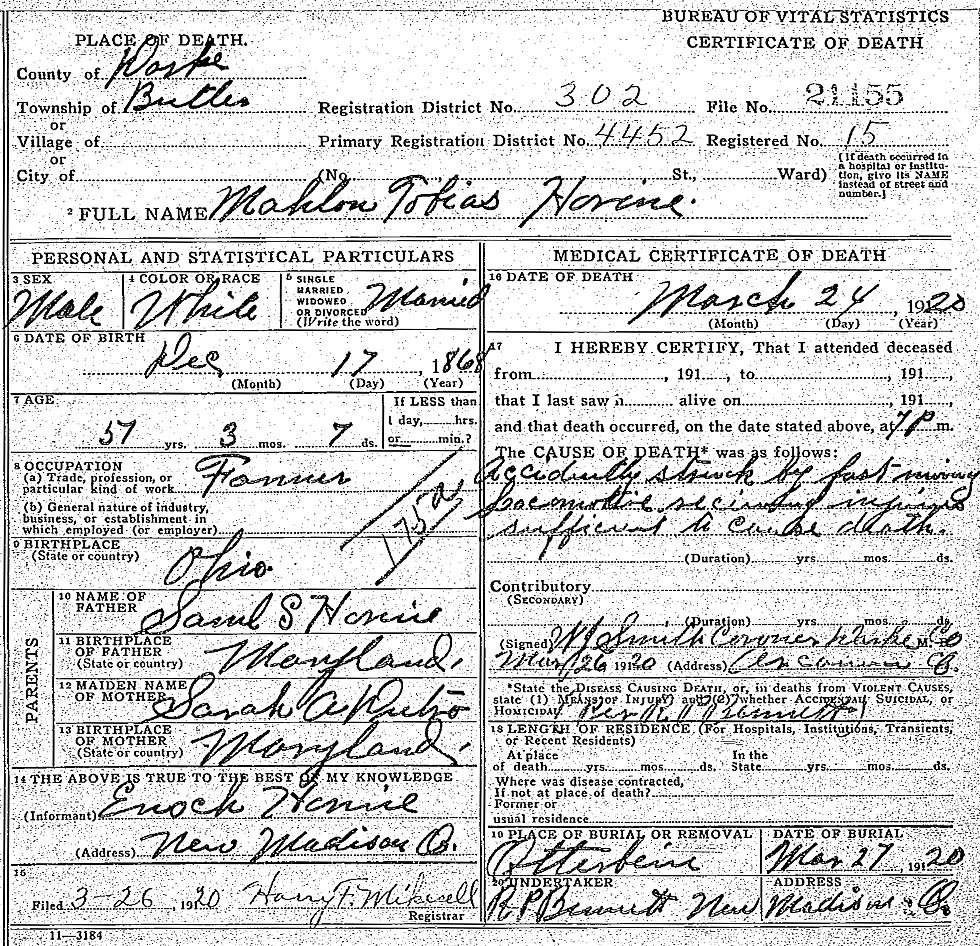 BUREAU OF VITAL STATISTICS
CERTIFICATE OF DEATH
PLACE OF DEATH.
County of Darke
Township of Butler
or
Village of
or
City of
Registration District No. 302 File No. 21155
Primary Registration District No. 4452 Registered No. 15
(No. St., Ward)
[If death occurred in
a hospital or institu-
tion, give its NAME
instead of street and
number.]
2 FULL NAME Mahlon Tobias Horine.
PERSONAL AND STATISTICAL PARTICULARS
3 SEX
Male
4 COLOR OR RACE
White
5 SINGLE
MARRIED
WIDOWED
OR DIVORCED
(Write the word)
Married
6 DATE OF BIRTH
Dec 17, 1868
(Month) (Day) (Year)
7 AGE
51 yrs. 3 mos. 7 ds.
If LESS than
1 day, hrs.
or min.?
8 OCCUPATION
(a) Trade, profession, or
particular kind of work Farmer
(b) General nature of industry,
business, or establishment in
which employed (or employer)
175a
9 BIRTHPLACE
(State or country)
Ohio
PARENTS
10 NAME OF
FATHER
Saml S Horine
11 BIRTHPLACE
OF FATHER
(State or country)
Maryland.
12 MAIDEN NAME
OF MOTHER
Sarah A
13 BIRTHPLACE
OF MOTHER
(State or country)
Maryland.
14 THE ABOVE IS TRUE TO THE BEST OF MY KNOWLEDGE
(Informant) Enoch Horine
(Address) New Madison O.
15
Filed 3-26, 1920 Harry F. Mikesell
Registrar
11—3184
MEDICAL CERTIFICATE OF DEATH
16 DATE OF DEATH
March 24, 1920
(Month) (Day) (Year)
17 I HEREBY CERTIFY, That I attended deceased
from , 191 , to , 191 ,
that I last saw h alive on , 191 ,
and that death occurred, on the date stated above, at 7 P m.
The CAUSE OF DEATH* was as follows:
Accidently struck by fast moving
locomotive reciving injuries
sufficient to cause death.
(Duration) yrs. mos. ds.
Contributory
(SECONDARY)
(Duration) yrs. mos. ds.
(Signed) W J Smith Coroner Darke Co M.D
Mar 26 1920 (Address) O.
*State the DISEASE CAUSING DEATH, or, in deaths from VIOLENT CAUSES,
state (1) MEANS OF INJURY; and (2) whether ACCIDENTAL, SUICIDAL, or
HOMICIDAL. Per R P Bennett
18 LENGTH OF RESIDENCE (For Hospitals, Institutions, Transients,
or Recent Residents)
At place In the
of death yrs. mos. ds. State yrs. mos. ds.
Where was disease contracted,
If not at place of death?
Former or
usual residence
19 PLACE OF BURIAL OR REMOVAL
Otterbein
DATE OF BURIAL
Mar 27, 1920
20 UNDERTAKER
R P Bennett
ADDRESS
New Madison O.